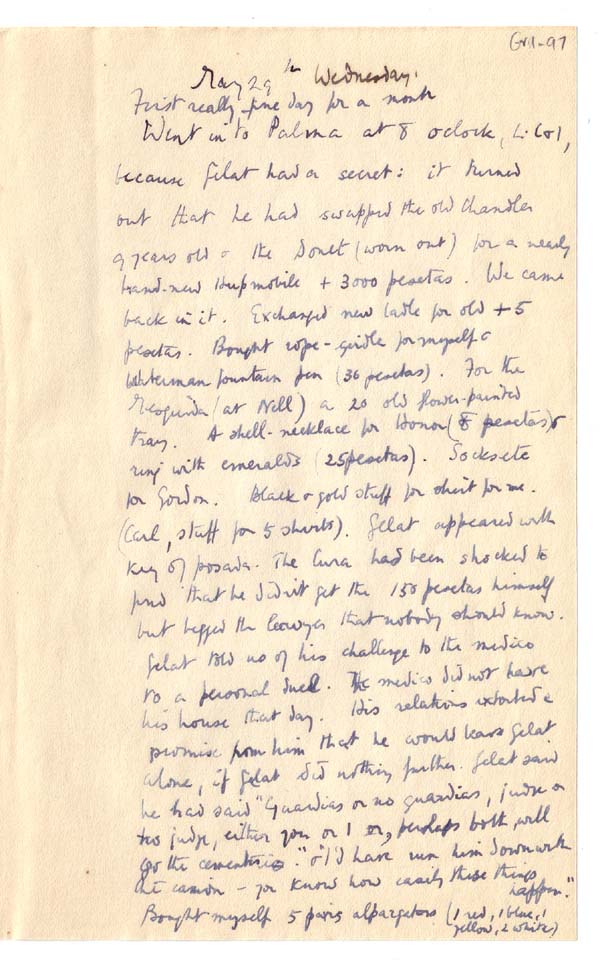 Gr.1-97
May 29th Wednesday.
First really fine day for a month
Went in to Palma at 8 o clock, L. G & I,
because Gelat had a secret: it turned
out that he had swapped the old Chandler
9 years old & the Donet (worn out) for a nearly
brand-new Hupmobile + 3000 pesetas. We came
back in it. Exchanged new ladle for old + 5
pesetas. Bought rope-girdle for myself &
Waterman fountain pen (36 pesetas). For the
(at Nell) a 20 old flower-painted
tray. A shell-necklace for Honor (8 pesetas) &
ring with emeralds (25 pesetas). Socks etc
for Gordon. Black & gold stuff for shirt for me.
(Carl, stuff for 5 shirts). Gelat appeared with
key of posada. The Cura had been shocked to
find that he didn't get the 150 pesetas himself
but begged the lawyer that nobody should know.
Gelat told us of his challenge to the medico
to a personal duel. The medico did not leave
his house that day. His relations extorted a
promise from him that he would leave Gelat
alone, if Gelat did nothing further. Gelat said
he had said "Guardias or no guardias, judge or
no judge, either you or I or, perhaps both, will
go the cementerio." & "I'd have run him down with
the camion – you know how easily these things
happen."
Bought myself 5 pairs alpargatas (1 red, 1 blue, 1
yellow, 2 white)